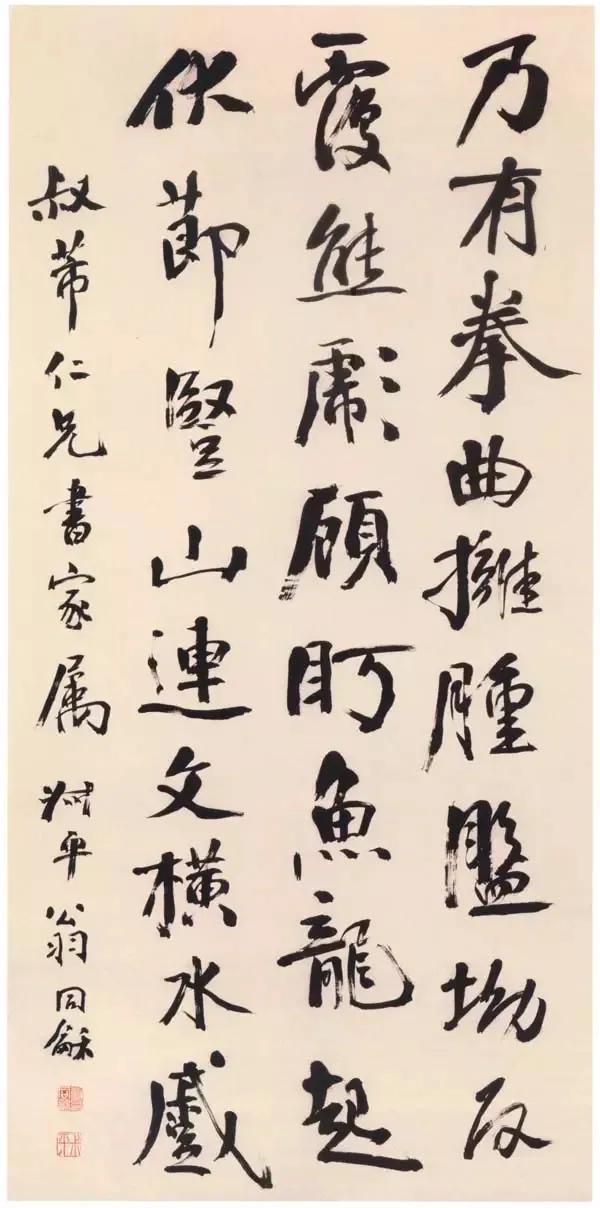 乃有拳曲擁腫盤坳反
覆熊彪顧眄魚龍起
伏莭豎山連文橫水蹙
叔芾仁兄書家属 叔平翁同龢